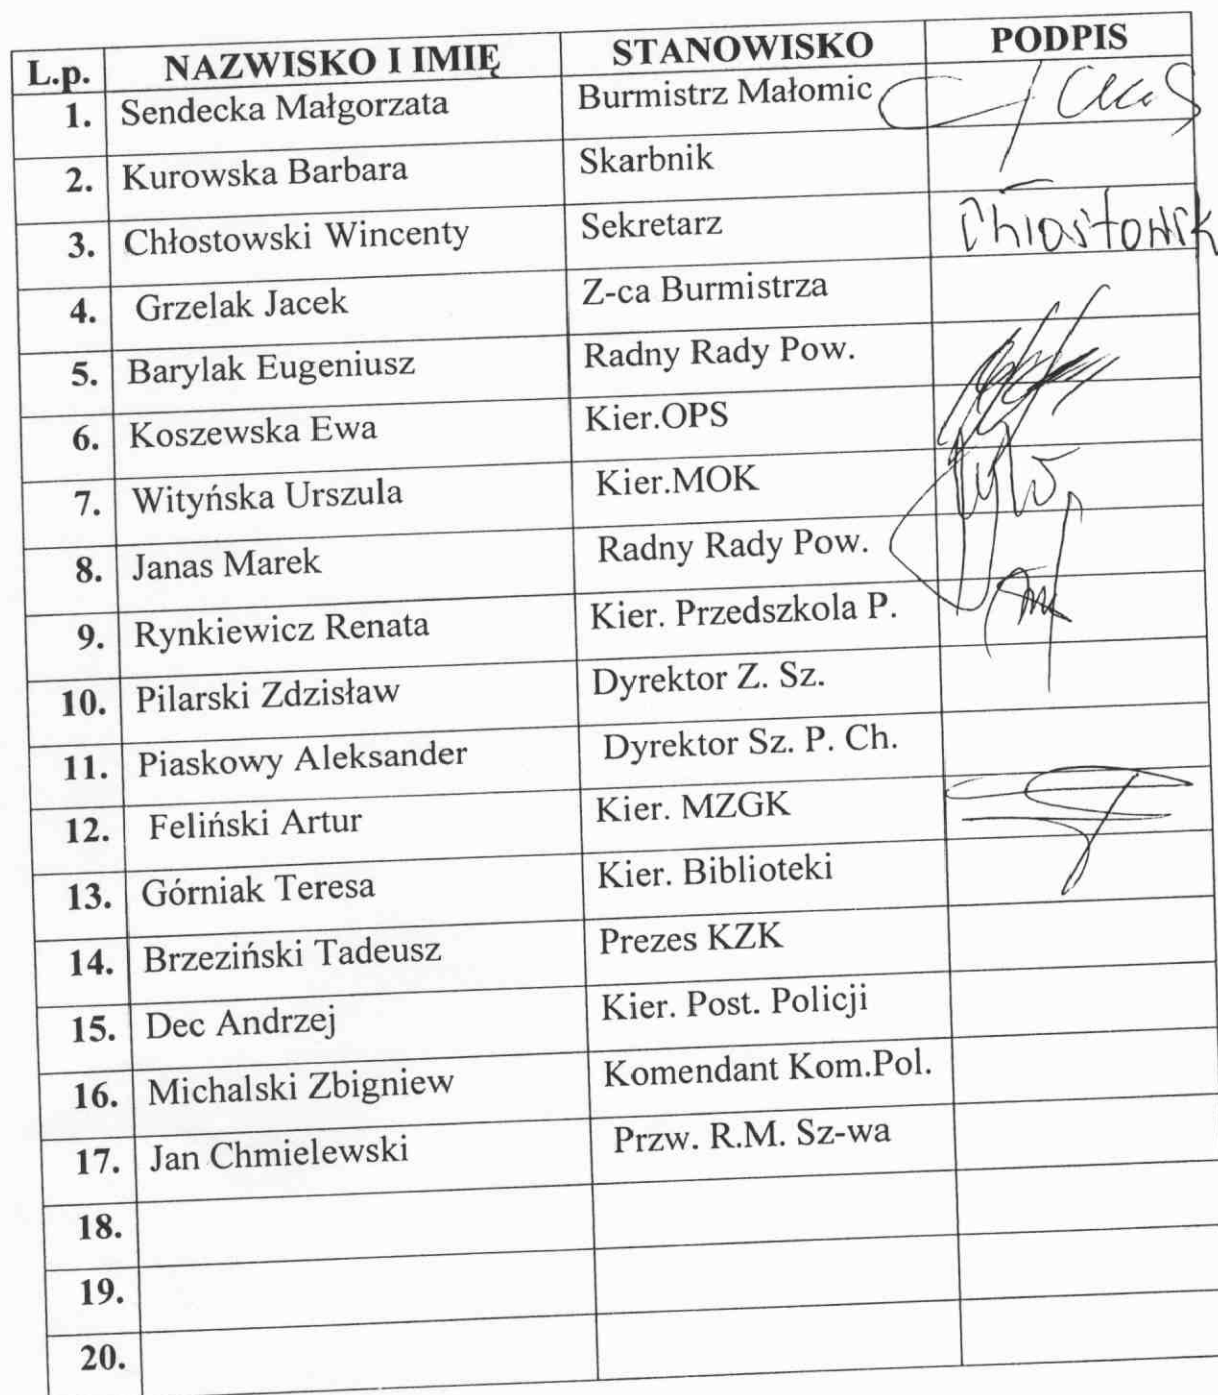 L.p. NAZWISKO I IMIĘ STANOWISKO PODPIS
1. Sendecka Małgorzata Burmistrz Małomic
2. Kurowska Barbara Skarbnik
3. Chłostowski Wincenty Sekretarz
4. Grzelak Jacek Z-ca Burmistrza
5. Barylak Eugeniusz Radny Rady Pow.
6. Koszewska Ewa Kier.OPS
7. Wityńska Urszula Kier.MOK
8. Janas Marek Radny Rady Pow.
9. Rynkiewicz Renata Kier. Przedszkola P.
10. Pilarski Zdzisław Dyrektor Z. Sz.
11. Piaskowy Aleksander Dyrektor Sz. P. Ch.
12. Feliński Artur Kier. MZGK
13. Górniak Teresa Kier. Biblioteki
14. Brzeziński Tadeusz Prezes KZK
15. Dec Andrzej Kier. Post. Policji
16. Michalski Zbigniew Komendant Kom.Pol.
17. Jan Chmielewski Przw. R.M. Sz-wa
18.
19.
20.